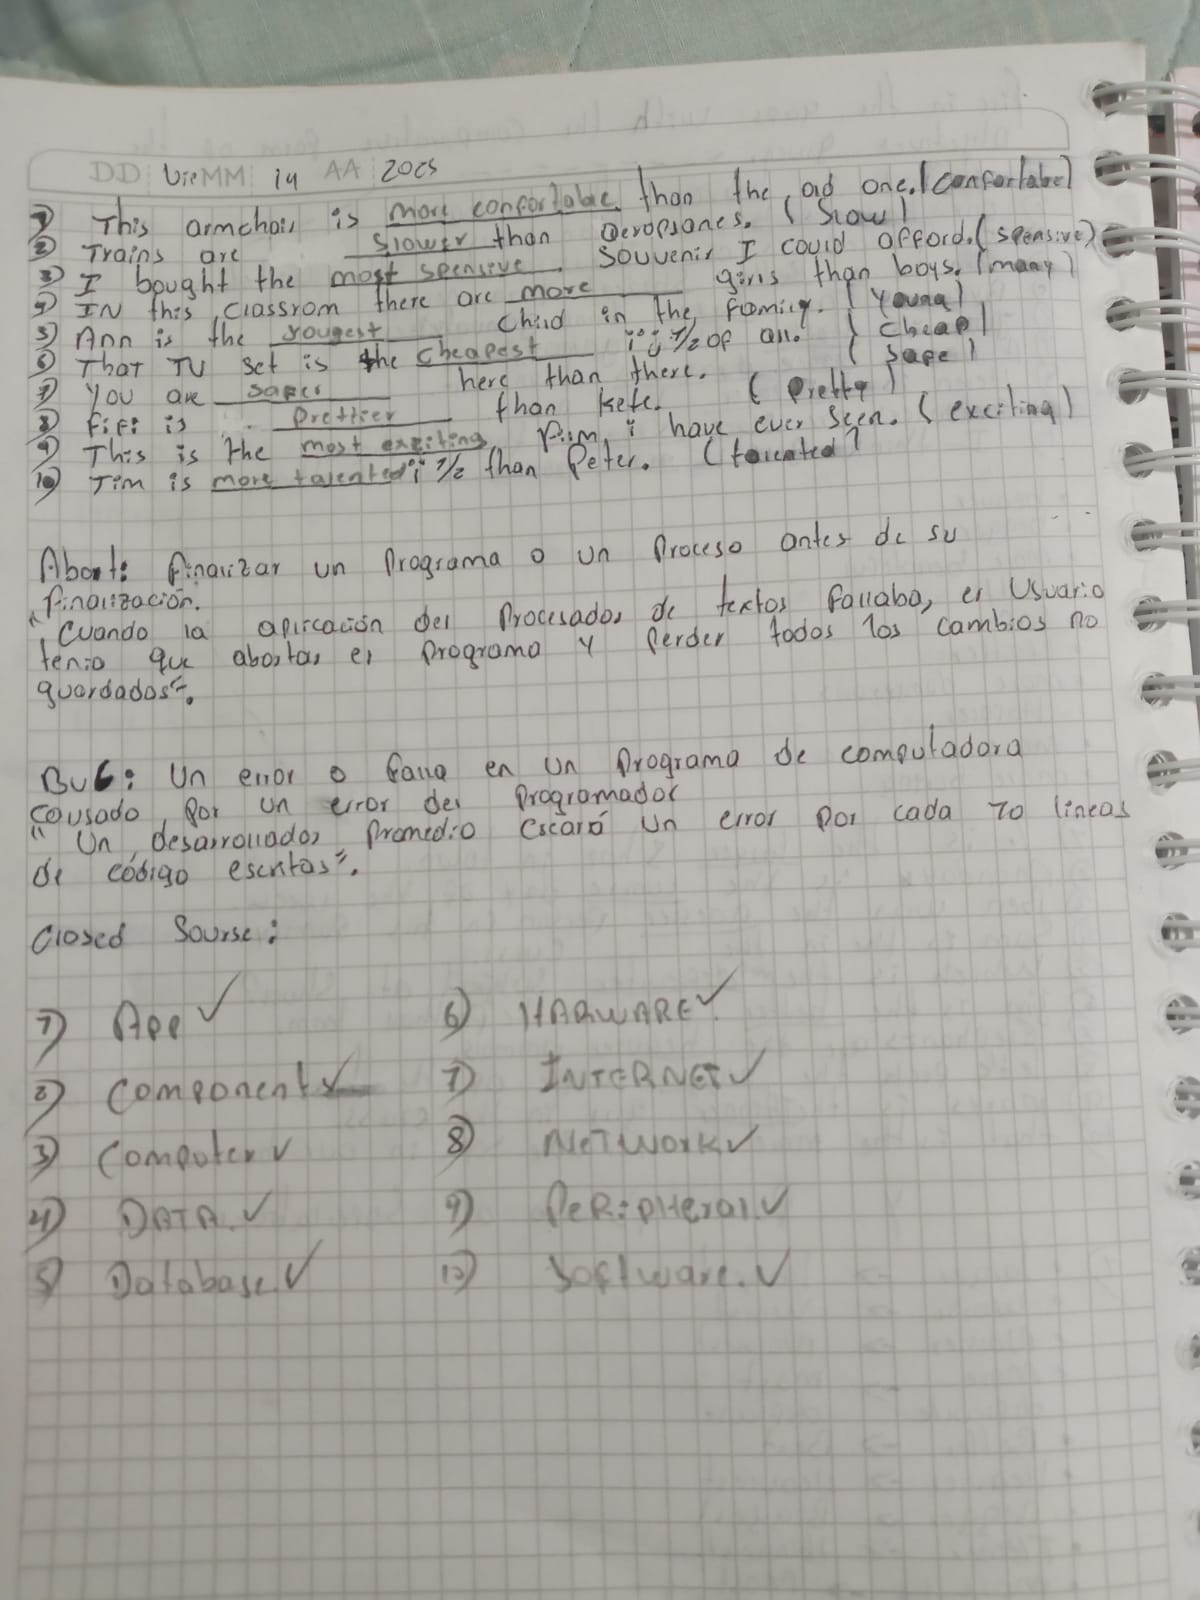 DD Vie MM 14 AA 2025
1) This armchair is more confortable than the old one. (confortable)
2) Trains are slower than aeroplanes. (Slow)
3) I bought the most spensive souvenir I could afford. (spensive)
4) IN this classrom there are more girls than boys. (many)
5) Ann is the yougest child in the family. (Young)
6) That TV set is the cheapest ïü 1/2 of all. (cheap)
7) You are safer here than there. (safe)
8) Fifi is prettier than Kete. (Pretty)
9) This is the most exciting film i have ever seen. (exciting)
10) Tim is more talented ï 1/2 than Peter. (talented)
Abort: finalizar un Programa o un Proceso antes de su
finalización.
"Cuando la aplicación del Procesador de textos fallaba, el Usuario
tenia que abortar el Programa y perder todos los cambios no
guardados".
BUG: Un error o falla en un Programa de computadora
causado por un error del Programador
"Un desarrollador Promedio creará un error por cada 10 líneas
de código escritas".
Closed Sourse:
1) App ✓ 6) HARWARE ✓
2) Components ✓ 7) INTERNET ✓
3) Computer ✓ 8) NeTWork ✓
4) DATA. ✓ 9) PeRipHeral. ✓
5) Database. ✓ 10) Software. ✓